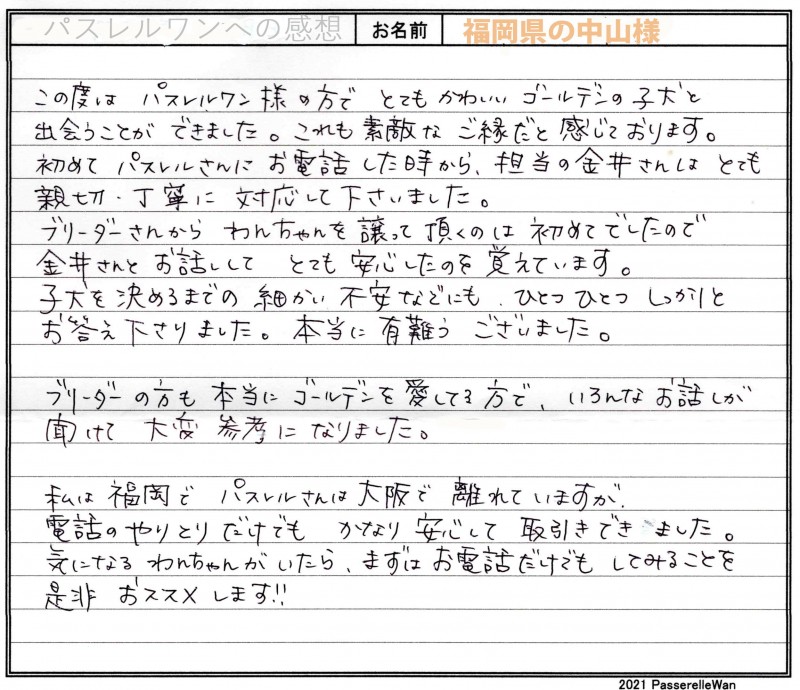 パスレルワンへの感想 お名前 福岡県の中山様
この度は パスレルワン様の方で とてもかわいいゴールデンの子犬と
出会うことができました。これも素敵なご縁だと感じております。
初めてパスレルさんにお電話した時から、担当の金井さんはとても
親切・丁寧に対応して下さいました。
ブリーダーさんからわんちゃんを譲って頂くのは初めてでしたので
金井さんとお話しして とても安心したのを覚えています。
子犬を決めるまでの細かい不安などにも、ひとつひとつしっかりと
お答え下さりました。本当に有難うございました。
ブリーダーの方も本当にゴールデンを愛してる方で、いろんなお話しが
聞けて大変参考になりました。
私は福岡でパスレルさんは大阪で離れていますが、
電話のやりとりだけでもかなり安心して取引きできました。
気になるわんちゃんがいたら、まずはお電話だけでもしてみることを
是非おススメします!!
2021 PasserelleWan